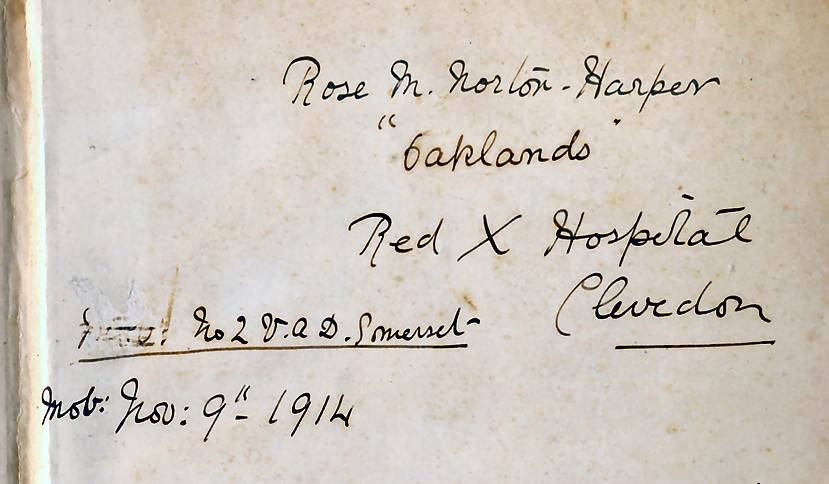 Rose M. Norton-Harper
"Oaklands"
Red X Hospital
Clevedon
No 2 V.A.D. Somerset
Mob: Nov: 9" 1914